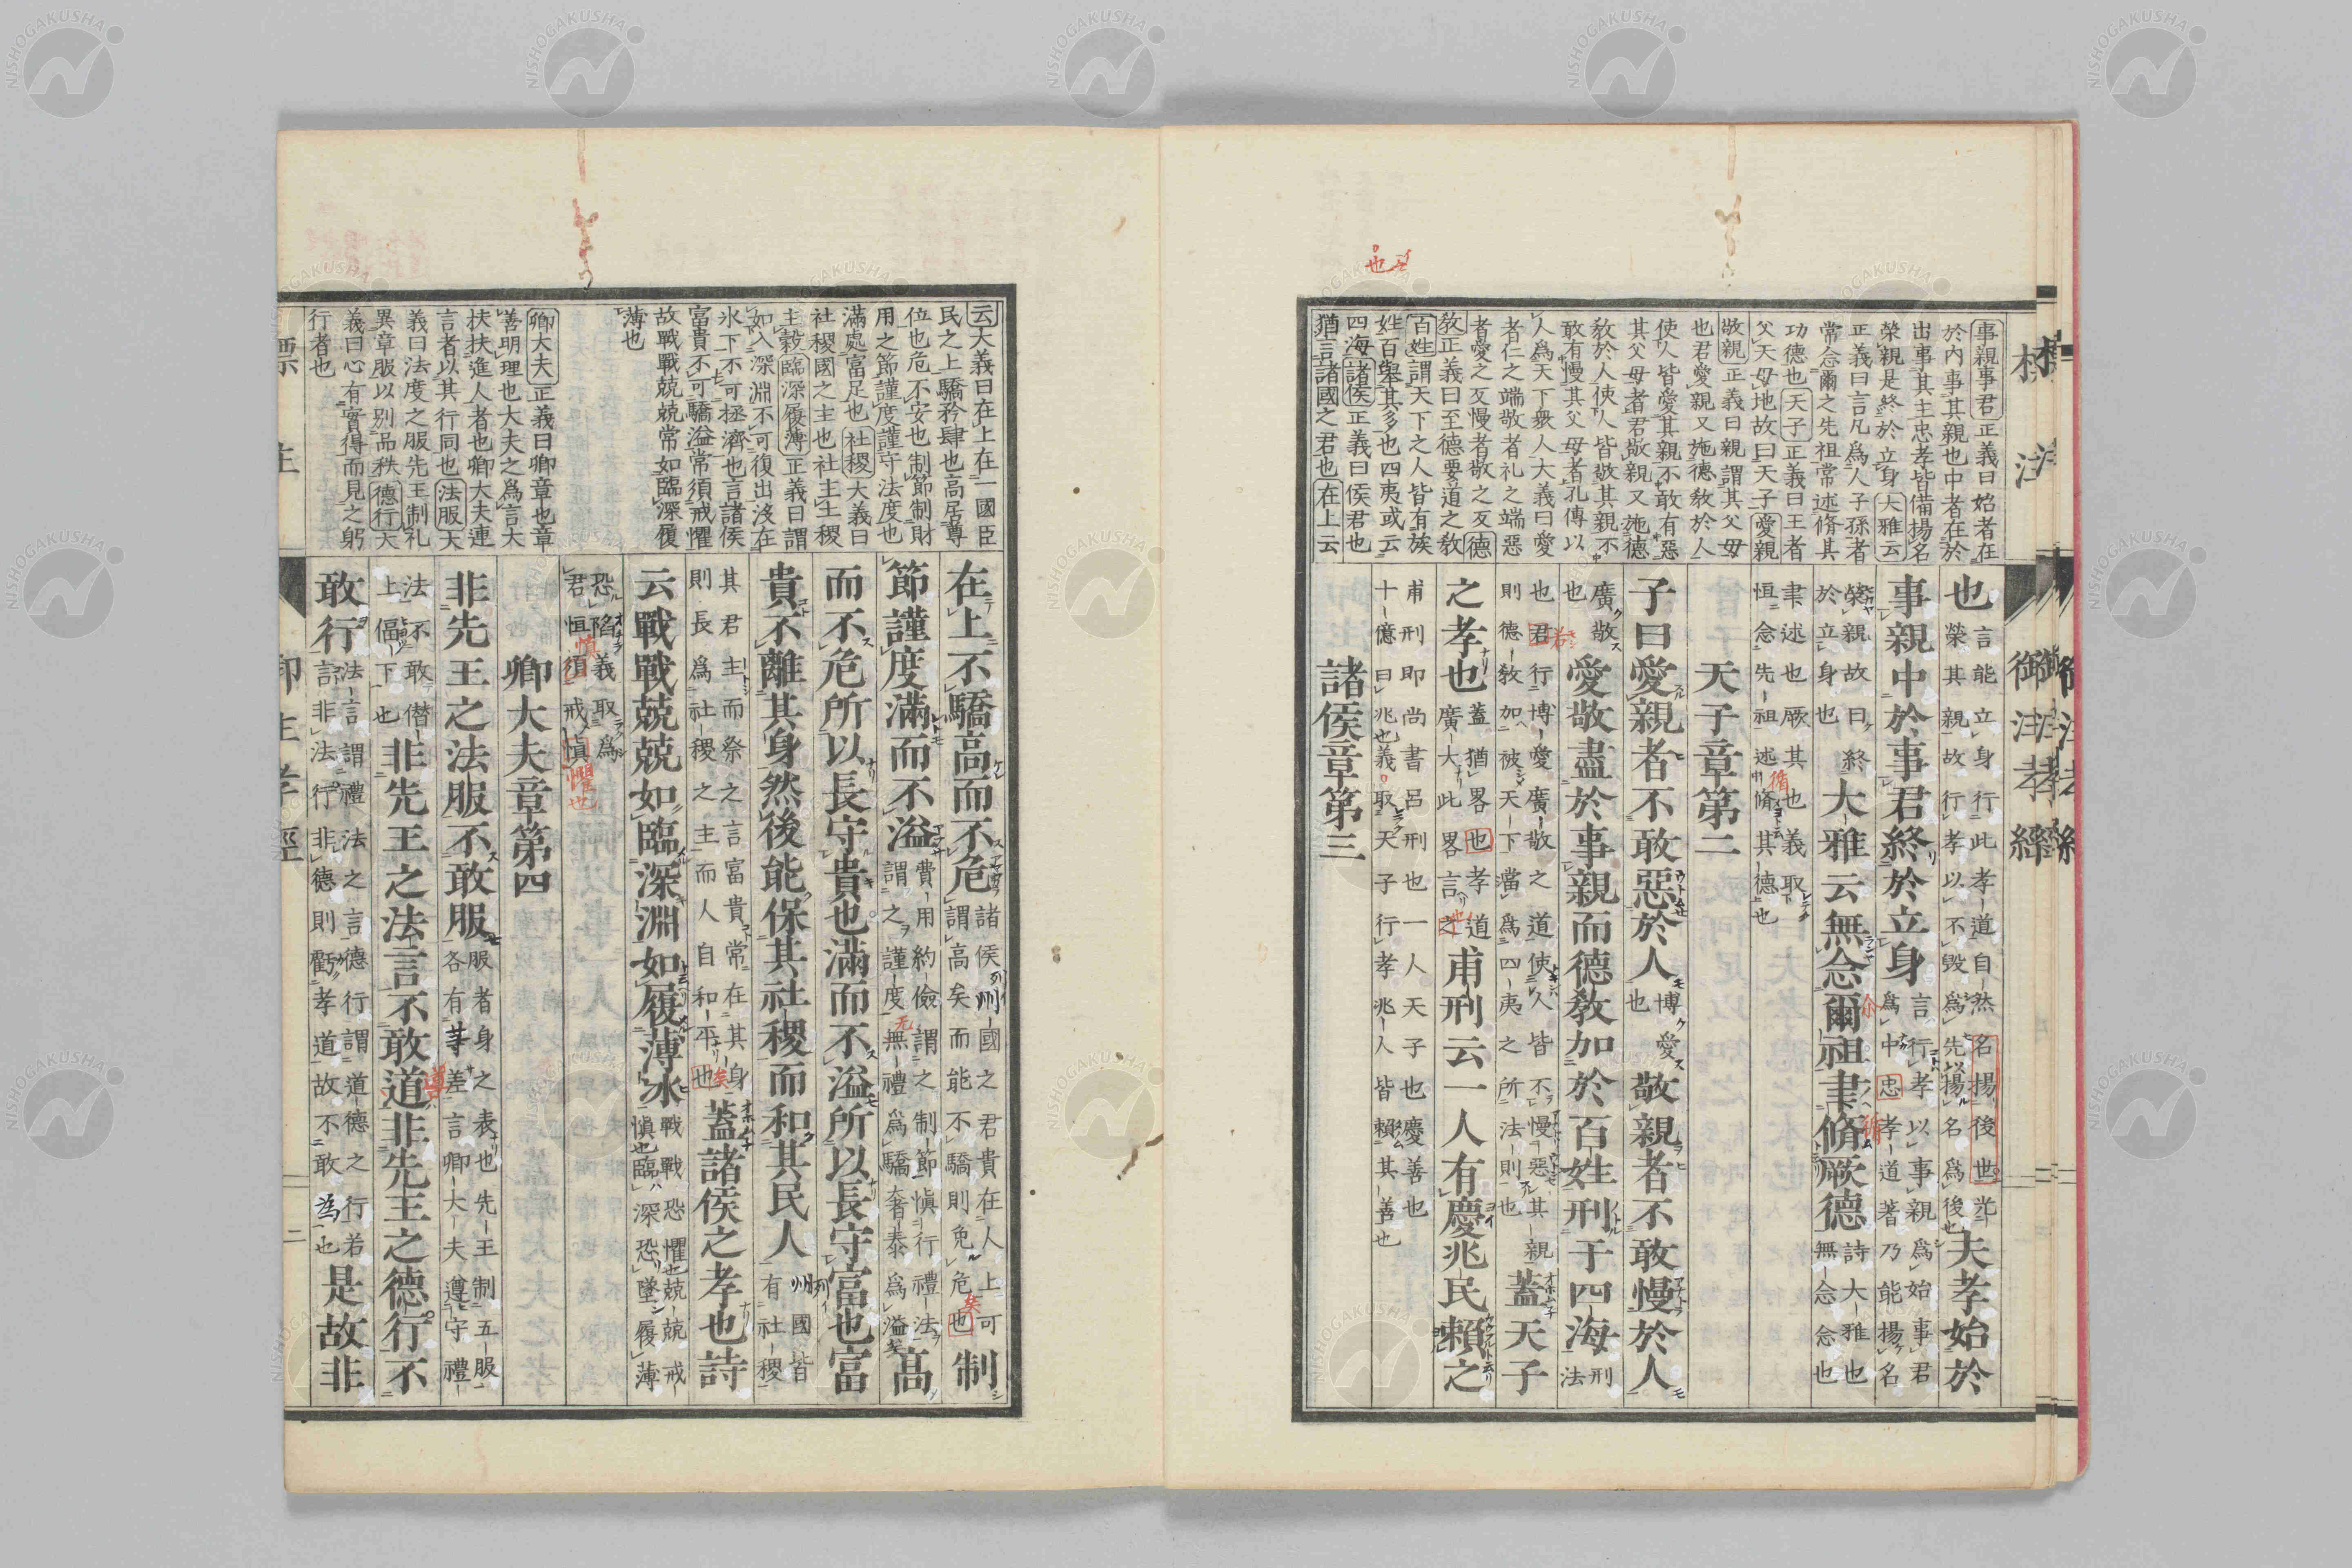 標注
御注孝經
事親事君正義曰始者在
於内事其親也中者在於
出事其主忠孝皆備揚名
榮親是終於立身大雅云
正義曰言凡爲人子孫者
常念爾之先祖常述脩其
功德也天子正義曰王者
父天母地故曰天子愛親
敬親正義曰親謂其父母
也君愛親又施德敎於人
使人皆愛其親不敢有惡
其父母者君敬親又施德
敎於人使人皆敬其親不
敢有慢其父母者孔傳以
人爲天下衆人大義曰愛
者仁之端敬者礼之端惡
者愛之反慢者敬之反德
敎正義曰至德要道之敎
百姓謂天下之人皆有族
姓百舉其多也四夷或云
四海諸侯正義曰侯君也
猶言諸國之君也在上云
也言能立身行此孝道自然名揚後世光榮其親故行孝以不毀爲先以揚名爲後也夫孝始於
事親中於事君終於立身言行孝以事親爲始事君爲中忠孝道著乃能揚名
榮親故曰終於立身也大雅云無念爾祖聿脩厥德詩大雅也無念念也
聿述也厥其也義取恒念先祖述脩其德也
天子章第二
子曰愛親者不敢惡於人博愛也敬親者不敢慢於人
廣敬也愛敬盡於事親而德敎加於百姓刑于四海刑法
也君行博愛廣敬之道使人皆不慢惡其親則德敎加被天下當爲四夷之所法則也蓋天子
之孝也蓋猶畧也孝道廣大此畧言之甫刑云一人有慶兆民賴之
甫刑即尚書呂刑也一人天子也慶善也十億曰兆也義取天子行孝兆人皆賴其善也
諸侯章第三
云大義曰在上在一國臣
民之上驕矜肆也高居尊
位也危不安也制節制財
用之節謹度謹守法度也
滿處富足也社稷大義曰
社稷國之主也社主土稷
主穀臨深履薄正義曰謂
如入深淵不可復出沒在
氷下不可拯濟也言諸侯
富貴不可驕溢常須戒懼
故戰戰兢兢常如臨深履
薄也
卿大夫正義曰卿章也章
善明理也大夫之爲言大
扶扶進人者也卿大夫連
言者以其行同也法服大
義曰法度之服先王制礼
異章服以別品秩德行大
義曰心有實得而見之躬
行者也
在上不驕高而不危諸侯列國之君貴在人上可謂高矣而能不驕則免危也制
節謹度滿而不溢費用約儉謂之制節愼行禮法謂之謹度無禮爲驕奢泰爲溢高
而不危所以長守貴也滿而不溢所以長守富也富
貴不離其身然後能保其社稷而和其民人列國皆有社稷
其君主而祭之言富貴常在其身則長爲社稷之主而人自和平也蓋諸侯之孝也詩
云戰戰兢兢如臨深淵如履薄冰戰戰恐懼兢兢戒愼也臨深恐墜履薄
恐陷義取爲君恒須戒愼
卿大夫章第四
非先王之法服不敢服服者身之表也先王制五服各有等差言卿大夫遵守禮
法不敢僭上偪下也非先王之法言不敢道非先王之德行不
敢行法言謂禮法之言德行謂道德之行若言非法行非德則虧孝道故不敢爲也是故非